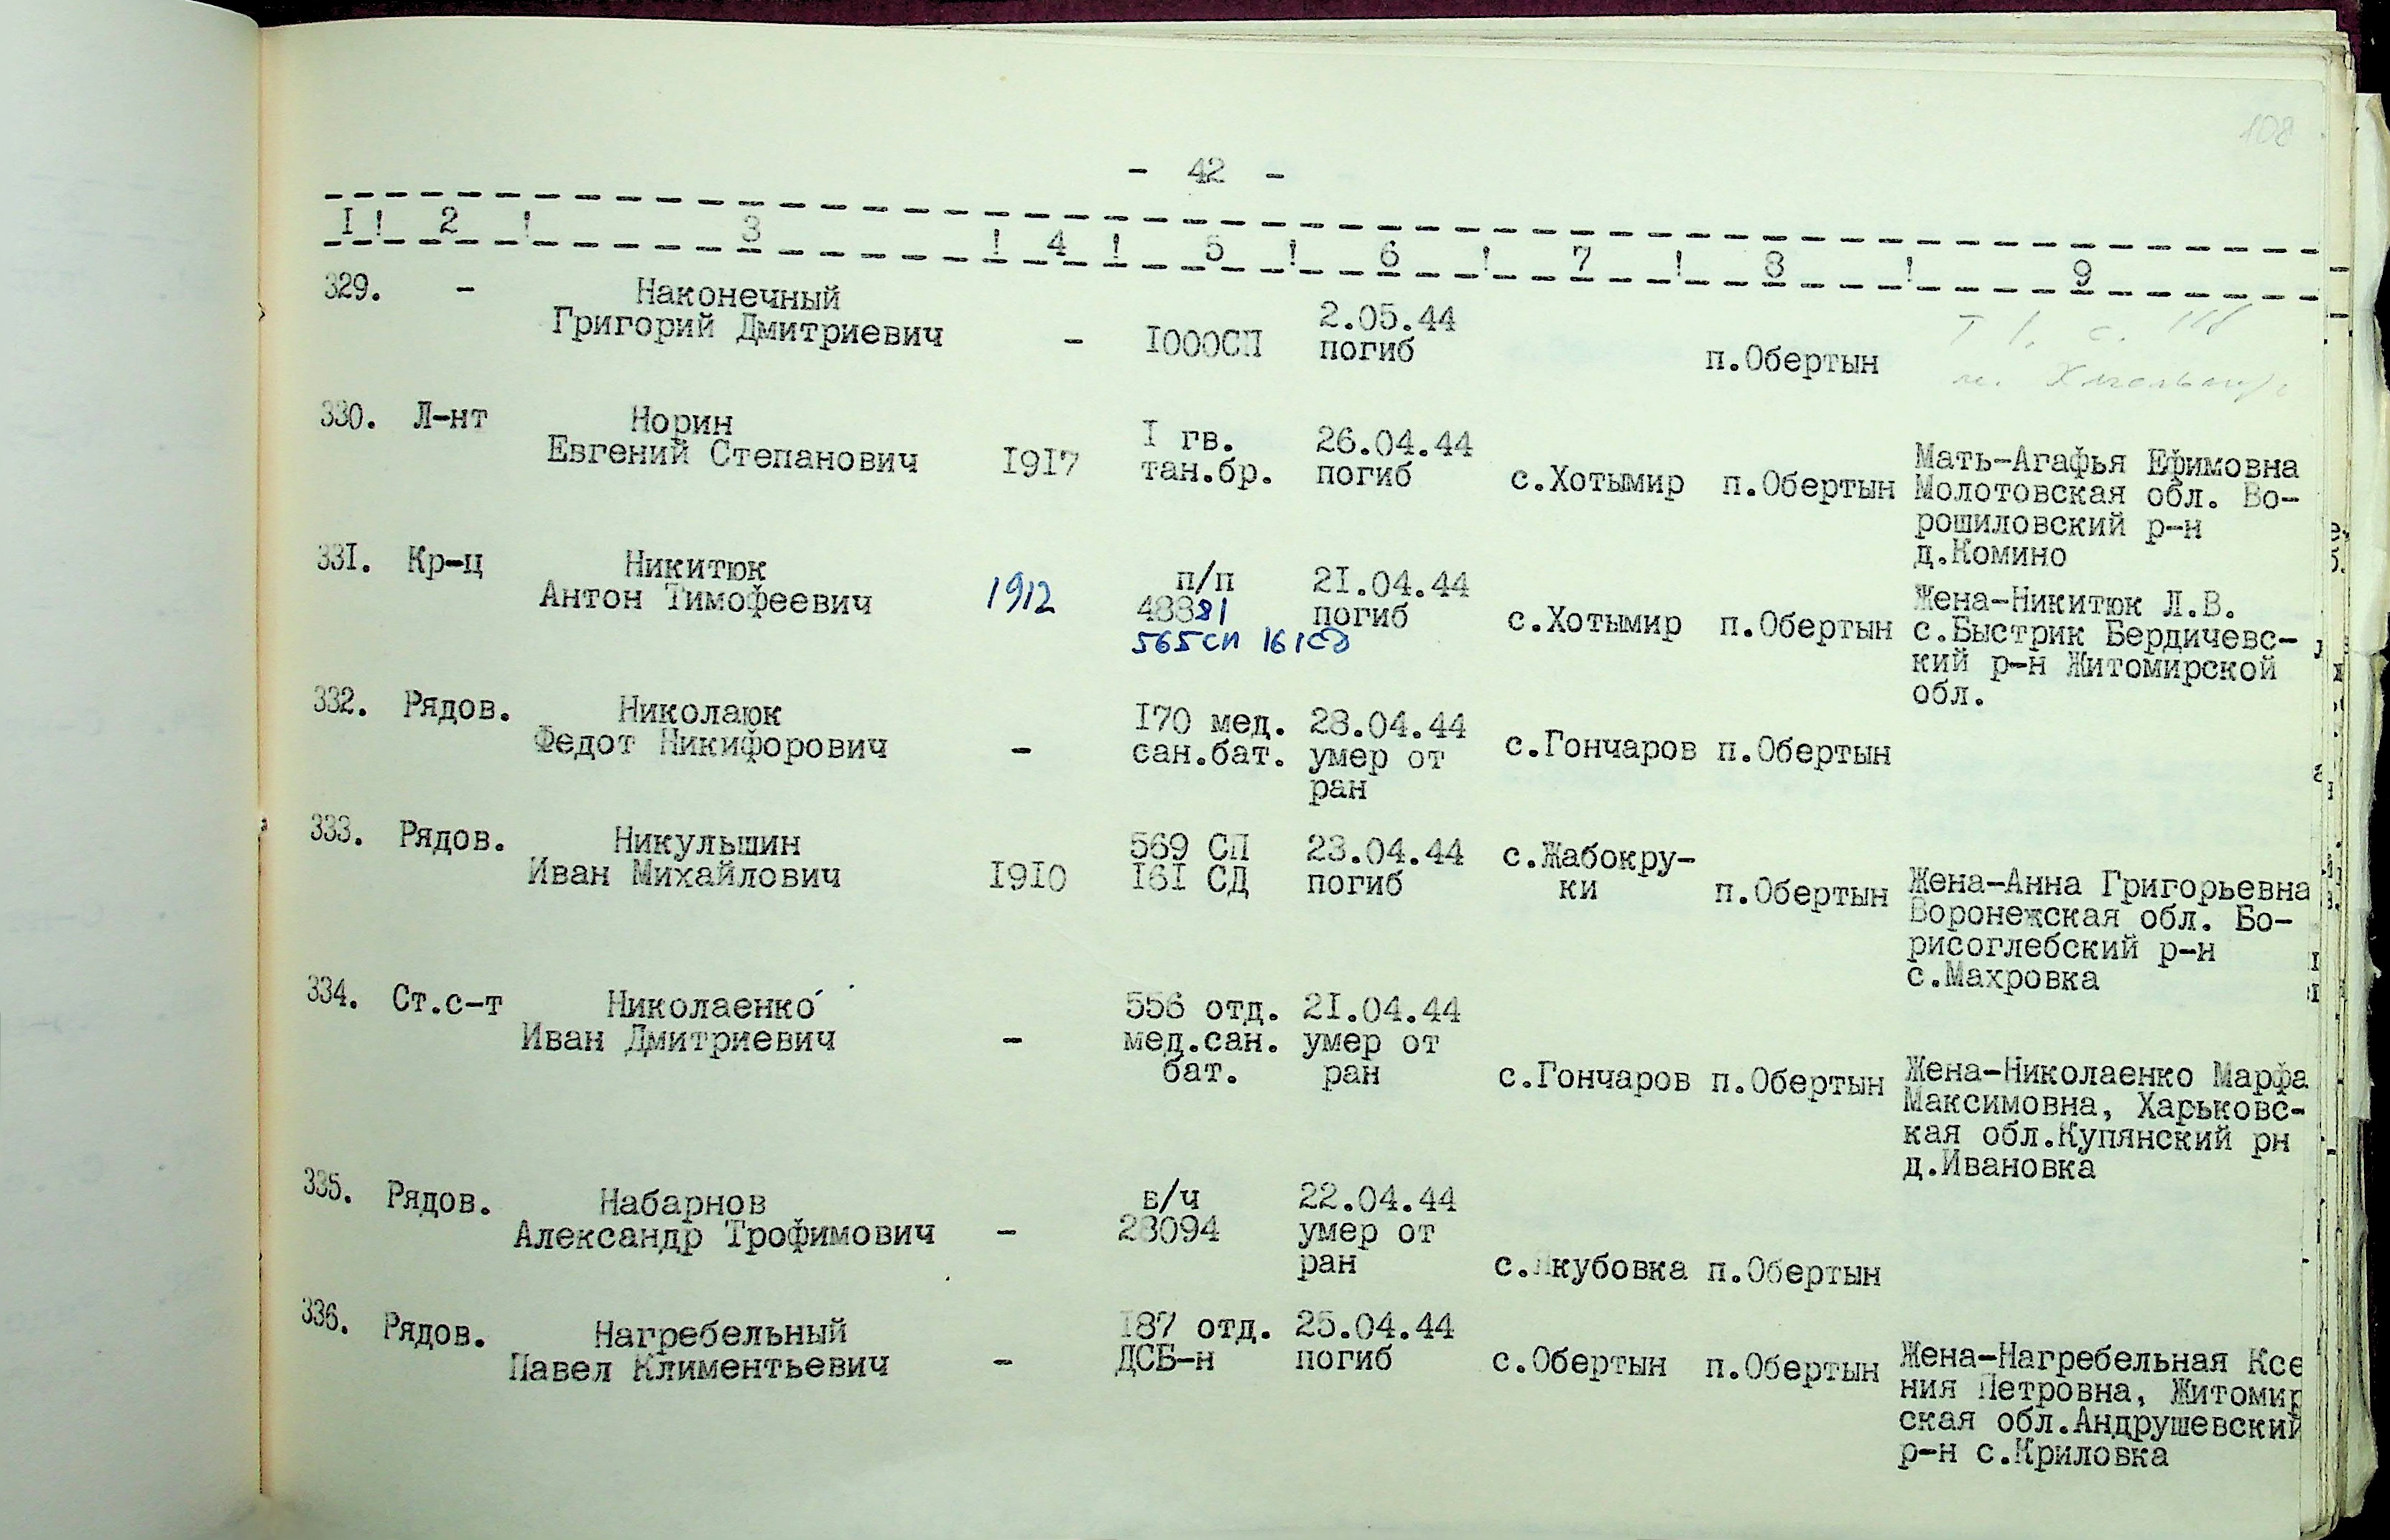 108
- 42 -
I ! 2 ! 3 ! 4 ! 5 ! 6 ! 7 ! 8 ! 9
329. - Наконечный
Григорий Дмитриевич - I000СП 2.05.44
погиб п.Обертын
330. Л-нт Норин
Евгений Степанович I9I7 I гв. 26.04.44
тан.бр. погиб с.Хотымир п.Обертын Мать-Агафья Ефимовна
Молотовская обл. Во-
рошиловский р-н
д.Комино
33I. Кр-ц Никитюк
Антон Тимофеевич 1912 п/п 2I.04.44
48881 погиб с.Хотымир п.Обертын Жена-Никитюк Л.В.
565сп 161сд с.Быстрик Бердичевс-
кий р-н Житомирской
обл.
332. Рядов. Николаюк
Федот Никифорович - I70 мед. 28.04.44
сан.бат. умер от с.Гончаров п.Обертын
ран
333. Рядов. Никульшин
Иван Михайлович I9I0 569 СП 23.04.44 с.Жабокру-
I6I СД погиб ки п.Обертын Жена-Анна Григорьевна
Воронежская обл. Бо-
рисоглебский р-н
с.Махровка
334. Ст.с-т Николаенко
Иван Дмитриевич - 556 отд. 2I.04.44
мед.сан. умер от
бат. ран с.Гончаров п.Обертын Жена-Николаенко Марфа
Максимовна, Харьковс-
кая обл.Купянский рн
д.Ивановка
335. Рядов. Набарнов
Александр Трофимович - в/ч 22.04.44
28094 умер от
ран с.Якубовка п.Обертын
336. Рядов. Нагребельный
Павел Климентьевич - I87 отд. 25.04.44
ДСБ-н погиб с.Обертын п.Обертын Жена-Нагребельная Ксе
ния Петровна, Житомир
ская обл.Андрушевский
р-н с.Криловка